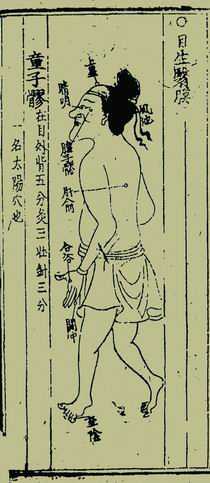 目生翳膜
風池
睛明
瞳子髎
肝俞
合谷
關冲
至陰
童子髎在目外眥五分灸三壮針三分
名太陽穴也